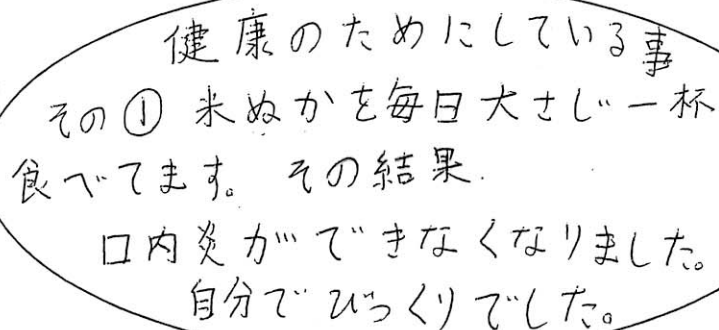 健康のためにしている事
その① 米ぬかを毎日大さじ一杯
食べてます。その結果.
口内炎ができなくなりました。
自分でびっくりでした。